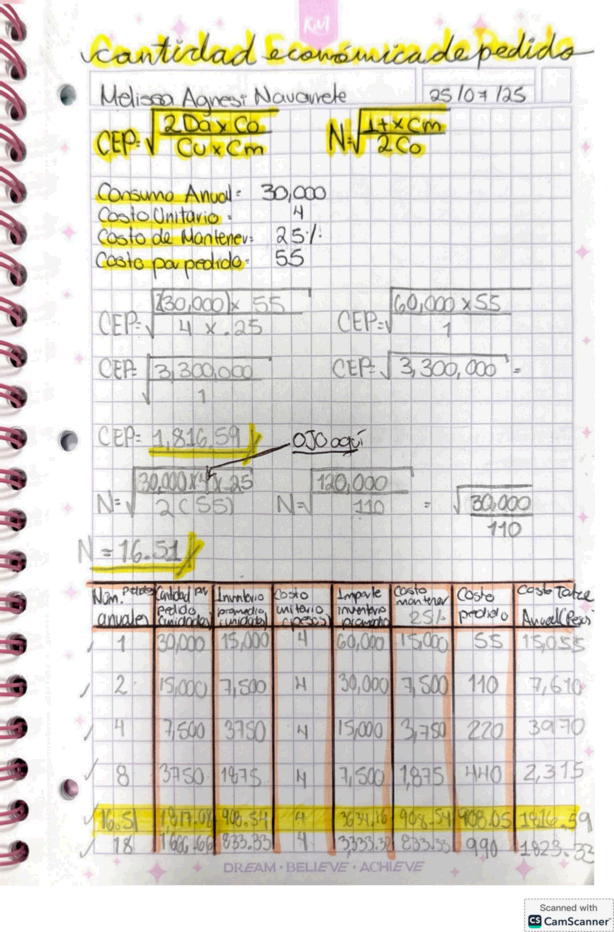 KM
Cantidad Económica de Pedido
Melissa Agnesi Navarrete 25/07/25
CEP=√2Da x Co / Cu x Cm N=√It x Cm / 2Co
Consumo Anual= 30,000
Costo Unitario= 4
Costo de Mantener= 25%
Costo por pedido= 55
CEP=√2(30,000) x 55 / 4 x .25 CEP=√60,000 x 55 / 1
CEP=√3,300,000 / 1 CEP=√3,300,000 =
CEP= 1,816.59
OJO aquí
N=√30,000 x 4 x .25 / 2(55) N=√120,000 / 110 = √30,000 / 110
N = 16.51
Núm. Pedidos anuales Cantidad por pedido (unidades) Inventario promedio (unidades) Costo unitario (pesos) Importe inventario promedio Costo mantener 25% Costo pedido Costo Total Anual (Pesos)
1 30,000 15,000 4 60,000 15,000 55 15,055
2 15,000 7,500 4 30,000 7,500 110 7,610
4 7,500 3750 4 15,000 3,750 220 3970
8 3750 1875 4 7,500 1,875 440 2,315
16.51 1817.08 908.54 4 3634.16 908.54 908.05 1816.59
18 1666.66 833.33 4 3,333.32 833.33 990 1823.33
DREAM · BELIEVE · ACHIEVE
Scanned with
CS CamScanner